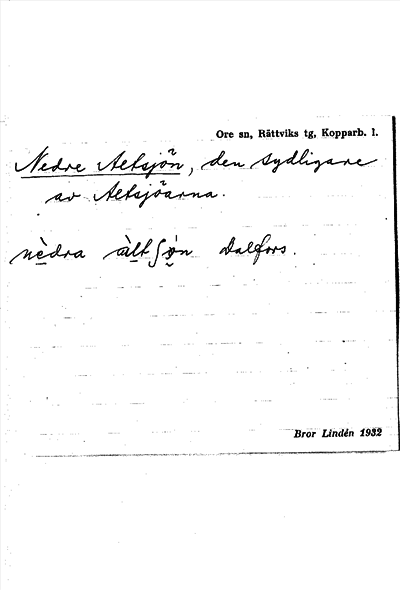 Ore sn, Rättviks tg, Kopparb. l.
Nedre Aeltsjön, den sydligare
av Aeltsjöarna.
nèdra àlt ʃø̀n Dalfors.
Bror Lindén 1932